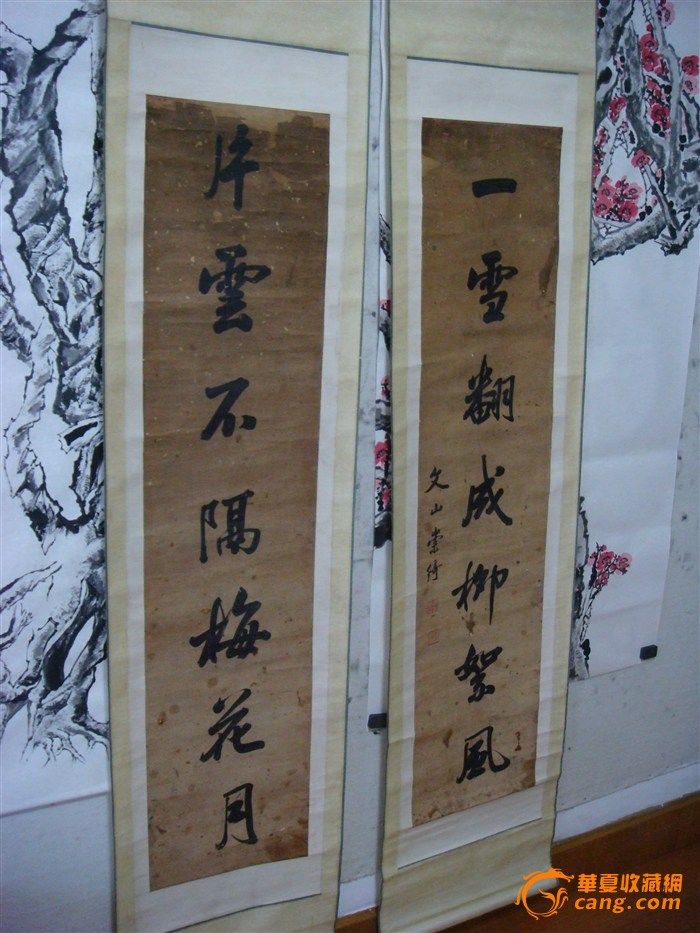 一雪翻成柳絮風
文山崇綺
片雲不隔梅花月
華夏收藏網
cang.com